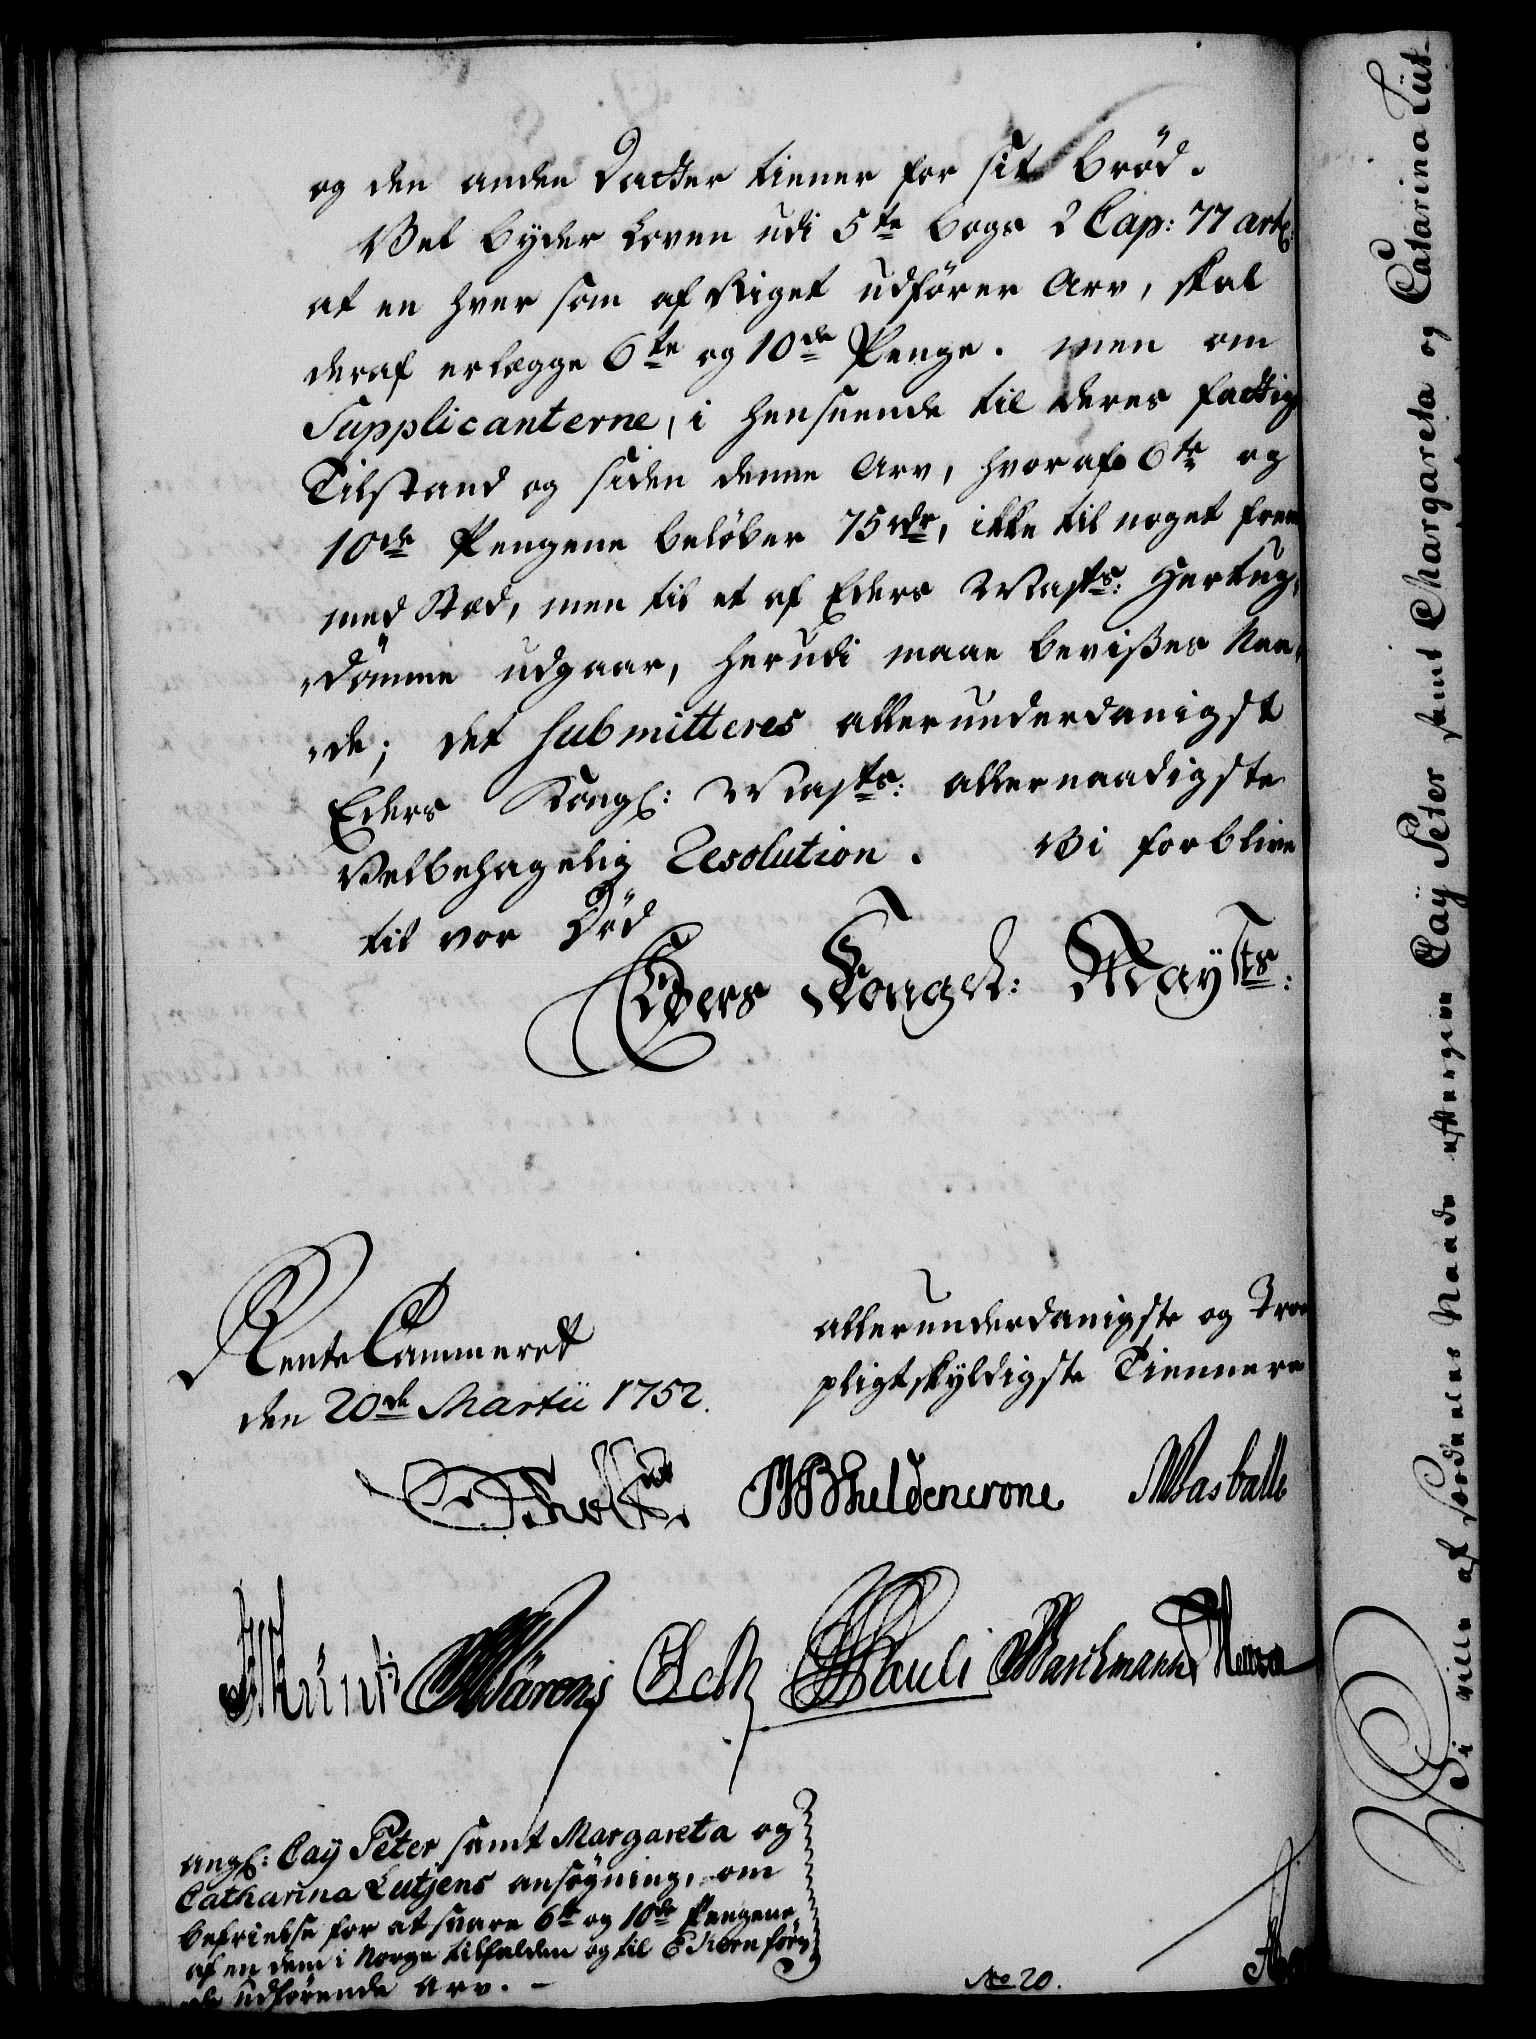 og den anden Datter tiener for sit brød.
Vel byder Loven udi 5te bogs 2 Cap: 77 art:
at en hver som af Riget udfører Arv, skal
deraf erlegge 6te og 10de Penge. men om
Supplicanterne, i henseende til deres fattige
Tilstand og siden denne Arv, hvoraf 6te og
10de Pengene beløber 75 rdr, ikke til noget frem
med Stæd, men til et af Eders Mayts: Hertug,
„dømme udgaar, herudi maae bevißes Naa,
„de; det submitteres allerunderdanigst
Eders Kongl: Mayts: allernaadigste
Velbehagelig Resolution. Vi forblive
til vor Død
Eders Kongel: Mayts:
RenteCammeret
den 20de Martii 1752.
allerunderdanigste og Troe
pligtskyldigste Tiennere
Gyldencrone
Pauli
angl: Caÿ Peter samt Margareta og
Catharina Lutjens ansøgning, om
befrielse for at svare 6te og 10de Pengene,
af en dem i Norge tilfalden og til Ekernför,
de udførende Arv. –
No 20.
Vi ville af særdeles Naade eftergive Caÿ Peter samt Margareta og Catarina Lüt-